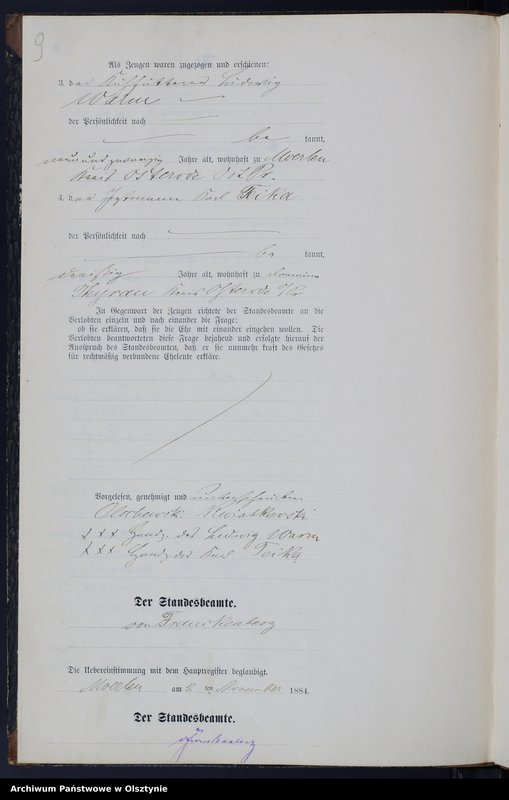 9
Als Zeugen waren zugezogen und erschienen:
3. der Ludwig
Warm
der Persönlichkeit nach
be kannt,
neunundzwanzig Jahre alt, wohnhaft zu Moerlen
Kreis Osterode Ost Pr.
4. der Karl Feika
der Persönlichkeit nach
be kannt,
dreißig Jahre alt, wohnhaft zu
Thyrau Kreis Osterode
In Gegenwart der Zeugen richtete der Standesbeamte an die
Verlobten einzeln und nach einander die Frage:
ob sie erklären, daß sie die Ehe mit einander eingehen wollen. Die
Verlobten beantworteten diese Frage bejahend und erfolgte hierauf der
Ausspruch des Standesbeamten, daß er sie nunmehr kraft des Gesetzes
für rechtmäßig verbundene Eheleute erkläre.
Vorgelesen, genehmigt und unterschrieben
Kwiatkowski
+ + + Handz. des Ludwig Warm
+ + + Handz. des Karl Feika
Der Standesbeamte.
von Franckenberg
Die Uebereinstimmung mit dem Hauptregister beglaubigt.
Moerlen am 2 ten November 1884.
Der Standesbeamte.
vFranckenberg
Archiwum Państwowe w Olsztynie